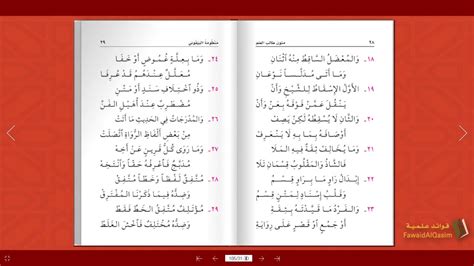 ٢٨ متون طالب العلم
١٨- وَالمُعْضَلُ السَّاقِطُ مِنْهُ اثْنَانِ
وَمَا أَتَى مُدَلَّسًا نَوْعَانِ
١٩- الأَوَّلُ الإِسْقَاطُ لِلشَّيْخِ وَأَنْ
يَنْقُلَ عَمَّنْ فَوْقَهُ بِعَنْ وَأَنْ
٢٠- وَالثَّانِ لَا يُسْقِطُهُ لَكِنْ يَصِفْ
أَوْصَافَهُ بِمَا بِهِ لَا يَنْعَرِفْ
٢١- وَمَا يُخَالِفْ ثِقَةٌ فِيهِ المَلَا
فَالشَّاذُّ وَالمَقْلُوبُ قِسْمَانِ تَلَا
٢٢- إِبْدَالُ رَاوٍ مَا بِرَاوٍ قِسْمُ
وَقَلْبُ إِسْنَادٍ لِمَتْنٍ قِسْمُ
٢٣- وَالفَرْدُ مَا قَيَّدْتَهُ بِثِقَةِ
أَوْ جَمْعٍ أَوْ قَصْرٍ عَلَى رِوَايَةِ
منظومة البيقوني ٢٩
٢٤- وَمَا بِعِلَّةٍ غُمُوضٍ أَوْ خَفَا
مُعَلَّلٌ عِنْدَهُمُ قَدْ عُرِفَا
٢٥- وَذُو اخْتِلَافِ سَنَدٍ أَوْ مَتْنِ
مُضْطَرِبٌ عِنْدَ أُهَيْلِ الفَنِّ
٢٦- وَالمُدْرَجَاتُ فِي الحَدِيثِ مَا أَتَتْ
مِنْ بَعْضِ أَلْفَاظِ الرُّوَاةِ اتَّصَلَتْ
٢٧- وَمَا رَوَى كُلُّ قَرِينٍ عَنْ أَخِهْ
مُدَبَّجٌ فَاعْرِفْهُ حَقًّا وَانْتَخِهْ
٢٨- مُتَّفِقٌ لَفْظًا وَخَطًّا مُتَّفِقْ
وَضِدُّهُ فِيمَا ذَكَرْنَا المُفْتَرِقْ
٢٩- مُؤْتَلِفٌ مُتَّفِقُ الخَطِّ فَقَطْ
وَضِدُّهُ مُخْتَلِفٌ فَاخْشَ الغَلَطْ
فوائد علمية
FawaidAlQasim